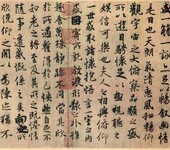 盛一觴一詠亦足以暢敘幽情
是日也天朗氣清惠風和暢仰
觀宇宙之大俯察品類之盛
所以遊目騁懷足以極視聽之
娛信可樂也夫人之相與俯仰
一世或取諸懷抱悟言一室之內
或因寄所託放浪形骸之外雖
趣舍萬殊靜躁不同當其欣
於所遇暫得於己快然自足不
知老之將至及其所之既惓情
隨事遷感慨係之矣向之所欣
俛仰之間以為陳迹猶不